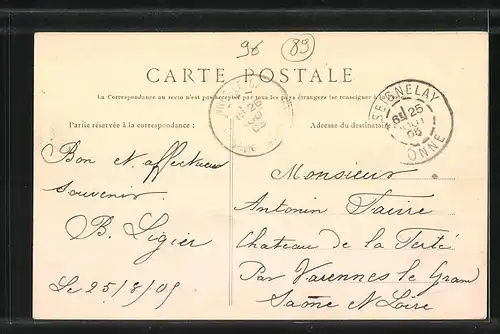 96 89
CARTE POSTALE
La Correspondance au recto n'est pas acceptée par tous les pays étrangers (se renseigner à
SEIGNELAY
6E 25
05
YONNE
26
05
Partie réservée à la correspondance :
Adresse du destinataire
Bon et affectueux
souvenir
B. Ligier
Le 25/8/05
Monsieur
Antonin Faivre
Chateau de la Ferté
Par Varennes le Grand
Saône et Loire